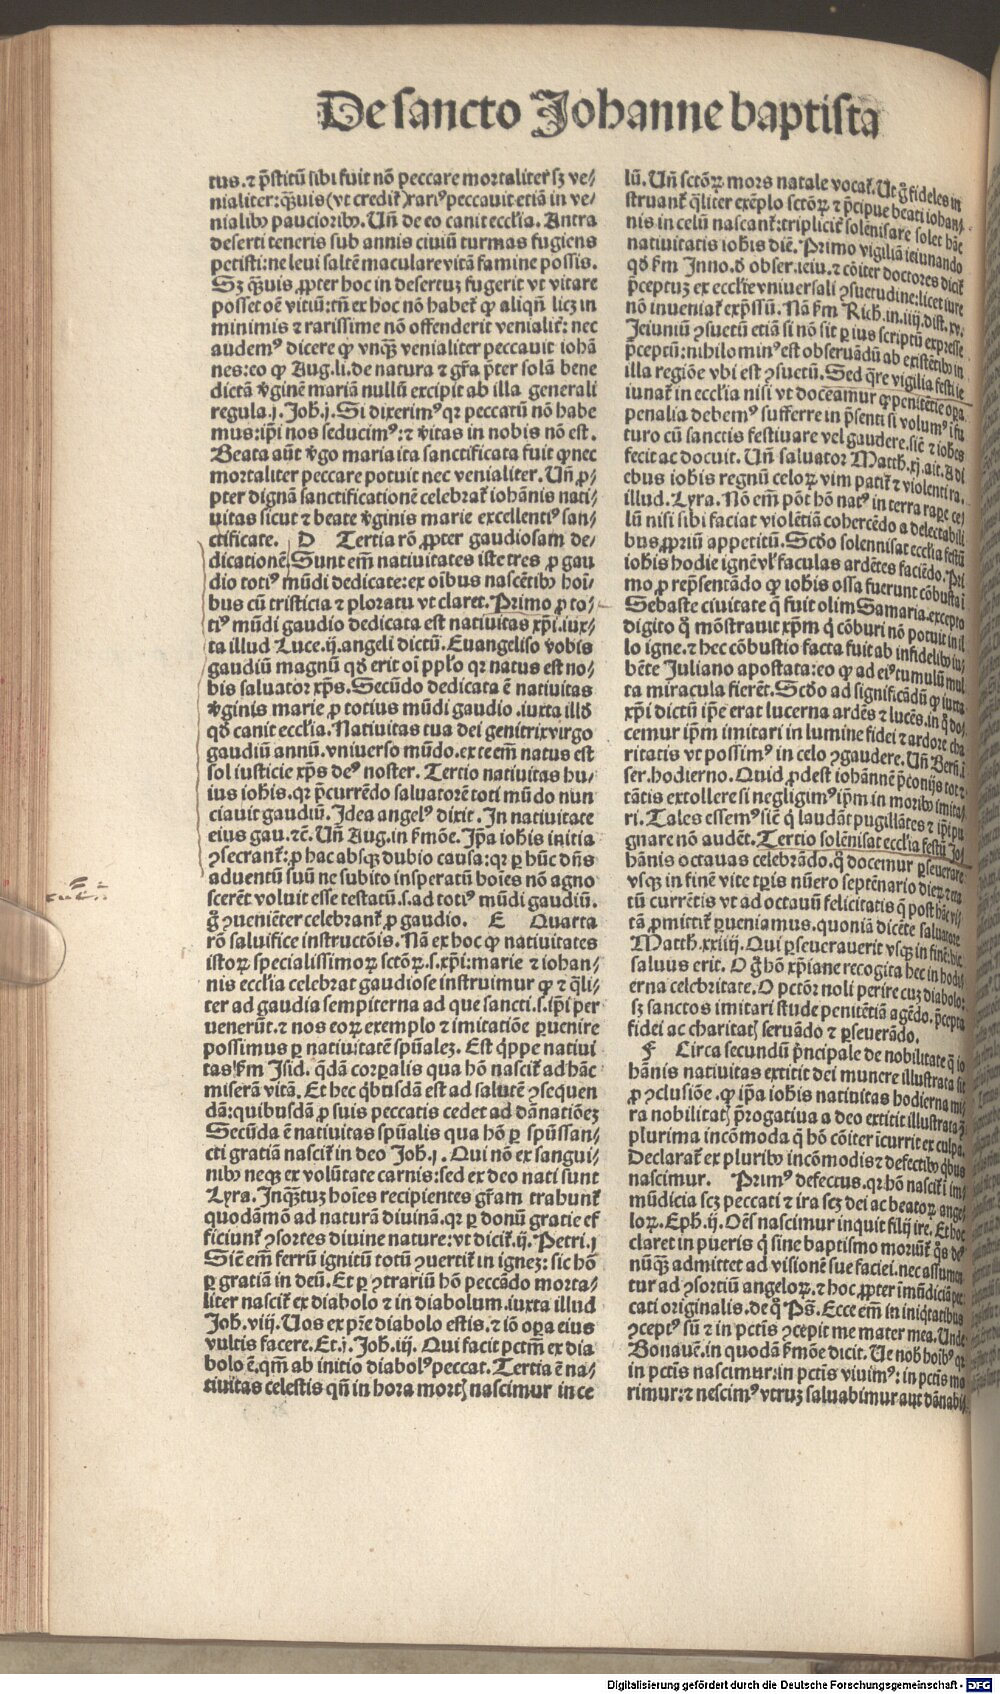 De sancto Johanne baptista
tus. ⁊ p̃stitũ sibi fuit nõ peccare mortaliter sꝫ ve⸗
nialiter: qᷓꝫuis (vt credit᷑) rariꝰ peccauit etiã in ve⸗
nialibꝰ paucioribꝰ. Uñ de eo canit eccľia. Antra
deserti teneris sub annis ciuiũ turmas fugiens
petisti: ne leui saltẽ maculare vitã famine possis.
Sꝫ qᷓꝫuis ꝓpter hoc in desertuꝫ fugerit vt vitare
posset oẽ vitiũ: tñ ex hoc nõ habet᷑ ꝙ aliqñ licꝫ in
minimis ⁊ rarissime nõ offenderit venialiť: nec
audemꝰ dicere ꝙ vnqᷓꝫ venialiter peccauit iohã
nes: eo ꝙ Aug. li. de natura ⁊ gr̃a p̃ter solã bene
dictã v̓ginẽ mariã nullũ excipit ab illa generali
regula. j. Joh. j. Si dixerimꝰ qꝛ peccatũ nõ habe
mus: ip̃i nos seducimꝰ: ⁊ v̓itas in nobis nõ est.
Beata aũt v̓go maria ita sanctificata fuit ꝙ nec
mortaliter peccare potuit nec venialiter. Uñ ꝓ⸗
pter dignã sanctificationẽ celebrat᷑ iohãnis nati⸗
uitas sicut ⁊ beate v̓ginis marie excellentiꝰ san⸗
ctificate. D Tertia rõ ꝓpter gaudiosam de⸗
dicationẽ Sunt em̃ natiuitates iste tres ꝓ gau
dio totiꝰ mũdi dedicate: ex oĩbus nascẽtibꝰ hoĩ⸗
bus cũ tristicia ⁊ ploratu vt claret. Primo ꝓ to⸗
tiꝰ mũdi gaudio dedicata est natiuitas xp̃i. iux⸗
ta illud Luce. ij. angeli dictũ. Euangeliso vobis
gaudiũ magnũ qđ erit oĩ pp̃lo qꝛ natus est no⸗
bis saluator xp̃s. Secũdo dedicata ẽ natiuitas
v̓ginis marie ꝓ totius mũdi gaudio. iuxta illđ
qđ canit eccľia. Natiuitas tua dei genitrix virgo
gaudiũ annũ. vniuerso mũdo. ex te em̃ natus est
sol iusticie xp̃s deꝰ noster. Tertio natiuitas hu⸗
ius iohis. qꝛ p̃currẽdo saluatorẽ toti mũdo nun
ciauit gaudiũ. Idea angelꝰ dixit. In natiuitate
eius gau. ⁊c̃. Uñ Aug. in ẜmõe. Ip̃a iohis initia
ꝯsecrant᷑: ꝓ hac absqꝫ dubio causa: qꝛ ꝑ hũc dñs
aduentũ suũ ne subito insperatũ hoĩes nõ agno
scerẽt voluit esse testatũ. s. ad totiꝰ mũdi gaudiũ.
g̃ ꝯueniẽter celebrant᷑ ꝓ gaudio. E Quarta
rõ saluifice instructõis. Nã ex hoc ꝙ natiuitates
istoꝝ specialissimoꝝ sctõꝝ. s. xp̃i: marie ⁊ iohan⸗
nis eccľia celebrat gaudiose instruimur ꝙ ⁊ qᷓli⸗
ter ad gaudia sempiterna ad que sancti. s. ip̃i per
uenerũt. ⁊ nos eoꝝ exemplo ⁊ imitatiõe ꝑuenire
possimus ꝑ natiuitatẽ sp̃ualeꝫ. Est q̃ppe natiui
tas ẜm Isid. q̃dã corꝑalis qua hõ nascit᷑ ad hãc
miserã vitã. Et hec qͥbusdã est ad salutẽ ꝯsequen
dã: quibusdã ꝓ suis peccatis cedet ad dãnatiõeꝫ
Secũda ẽ natiuitas sp̃ualis qua hõ ꝑ sp̃ũssan⸗
cti gratiã nascit᷑ in deo Joh. j. Qui nõ ex sangui⸗
nibꝰ neqꝫ ex volũtate carnis: sed ex deo nati sunt
Lyra. Inqᷓꝫtuꝫ hoĩes recipientes gr̃am trahunt᷑
quodãmõ ad naturã diuinã. qꝛ ꝑ donũ gratie ef
ficiunt᷑ ꝯsortes diuine nature: vt dicit᷑. ij. Petri. j
Sic̃ em̃ ferrũ ignitũ totũ ꝯuertit᷑ in igneꝫ: sic hõ
ꝑ gratiã in deũ. Et ꝑ ꝯtrariũ hõ peccãdo morta⸗
liter nascit᷑ ex diabolo ⁊ in diabolum. iuxta illud
Joh. viij. Uos ex pr̃e diabolo estis. ⁊ iõ oꝑa eius
vultis facere. Et. j. Joh. iij. Qui facit pctm̃ ex dia
bolo ẽ. qm̃ ab initio diabolꝰ peccat. Tertia ẽ na⸗
tiuitas celestis qñ in hora mortꝭ nascimur in ce
lũ. Uñ sctõꝝ mors natale vocat᷑. Ut g̃ fideles in
struant᷑ qᷓliter exẽplo sctõꝝ ⁊ p̃cipue beati iohan⸗
nis in celũ nascant᷑: tripliciť solẽnisare solet hãc
natiuitatis iohis diẽ. Primo vigiliã ieiunando
qđ ẜm Inno. đ obser. ieiu. ⁊ cõiter doctores dicit᷑
p̃ceptuꝫ ex eccľie vniuersali ꝯsuetudine: licet iure
nõ inueniat᷑ exp̃ssũ. Nã ẜm Rich. in. iiij. dist. xv.
Jeiuniũ ꝯsuetũ etiã si nõ sit ꝑ ius scriptũ expresse
p̃ceptũ: nihilo minꝰ est obseruãdũ ab existẽtibꝰ in
illa regiõe vbi est ꝯsuetũ. Sed q̃re vigilia festi ie
iunat᷑ in eccľia nisi vt doceamur ꝙ penitẽtie oꝑa
penalia debemꝰ sufferre in p̃senti si volumꝰ ĩ fu
turo cũ sanctis festiuare vel gaudere. sic̃ ⁊ iohes
fecit ac docuit. Uñ saluator Matth. xj. ait. A di
ebus iohis regnũ celoꝝ vim patit᷑ ⁊ violenti ra.
illud. Lyra. Nõ em̃ põt hõ natꝰ in terra rapẽ ce⸗
lũ nisi sibi faciat violẽtiã cohercẽdo a delectabili
bus ꝓpriũ appetitũ. Scđo solennisat eccľia festũ
iohis hodie ignẽ vľ faculas ardẽtes faciẽdo. Pri
mo ꝓ rep̃sentãdo ꝙ iohis ossa fuerunt cõbusta ĩ
Sebaste ciuitate q̃ fuit olim Samaria. excepto
digito q̊ mõstrauit xp̃m q̇ cõburi nõ potuit in il
lo igne. ⁊ hec cõbustio facta fuit ab infidelibꝰ iu⸗
bẽte Juliano apostata: eo ꝙ ad eiꝰ tumulũ mul
ta miracula fierẽt. Scđo ad significãdũ ꝙ iuxta
xp̃i dictũ ip̃e erat lucerna ardẽs ⁊ lucẽs. in q̊ do⸗
cemur ip̃m imitari in lumine fidei ⁊ ardore cha
ritatis vt possimꝰ in celo ꝯgaudere. Uñ Berñ. ĩ
ser. hodierno. Quid ꝓdest iohãnẽ p̃conijs tot ⁊
tãtis extollere si negligimꝰ ip̃m in moribꝰ imita⸗
ri. Tales essemꝰ sic̃ q̇ laudãt pugillãtes ⁊ ip̃i pu
gnare nõ audẽt. Tertio solẽnisat eccľia festũ Jo⸗
hãnis octauas celebrãdo. q̊ docemur ꝑseuerare
vsqꝫ in finẽ vite tp̃ris nũero septẽnario dieꝝ ⁊ ita
tũ currẽtis vt ad octauũ felicitatis q̃ post hãc vi⸗
tã ꝓmittit᷑ ꝑueniamus. quoniã dicẽte saluatore
Matth. xxiiij. Qui ꝑseuerauerit vsqꝫ in finẽ: hic
saluus erit. O g̃ hõ xp̃iane recogita hec in hodi
erna celebritate. O pctõr noli perire cuꝫ diabolo:
sꝫ sanctos imitari stude penitẽtiã agẽdo. p̃cepta
fidei ac charitatꝭ seruãdo ⁊ ꝑseuerãdo.
F Circa secundũ p̃ncipale de nobilitate q̃ io
hãnis natiuitas extitit dei munere illustrata sit
ꝓ ꝯclusiõe. ꝙ ip̃a iohis natiuitas hodierna mi⸗
ra nobilitatꝭ p̃rogatiua a deo extitit illustrata ꝗ̃
plurima incõmoda q̃ hõ cõiter ĩcurrit ex culpa.
Declarat᷑ ex pluribꝰ incõmodis ⁊ defectibꝰ qͥbus
nascimur. Primꝰ defectus. qꝛ hõ nascit᷑ ĩ im⸗
mũdicia scꝫ peccati ⁊ ira scꝫ dei ac beatoꝝ ange⸗
loꝝ. Eph. ij. Oẽs nascimur inquit filij ire. Et hoc
claret in pueris q̇ sine baptismo moriũt᷑ q̊s deꝰ
nũqᷓꝫ admittet ad visionẽ sue faciei. nec assumen
tur ad ꝯsortiũ angeloꝝ. ⁊ hoc ꝓpter imũdiciã pec
cati originalis. de q̊ Ps̃. Ecce em̃ in iniqͥtatibus
ꝯceptꝰ sũ ⁊ in pctĩs ꝯcepit me mater mea. Unde
Bonauẽ. in quodã ẜmõe dicit. Ue nob̃ hoĩbꝰ qꝛ
in pctĩs nascimur: in pctĩs viuimꝰ: in pctĩs mo
rimur: ⁊ nescimꝰ vtruꝫ saluabimur aut dãnabi⸗
Digitalisierung gefördert durch die Deutsche Forschungsgemeinschaft - DFG